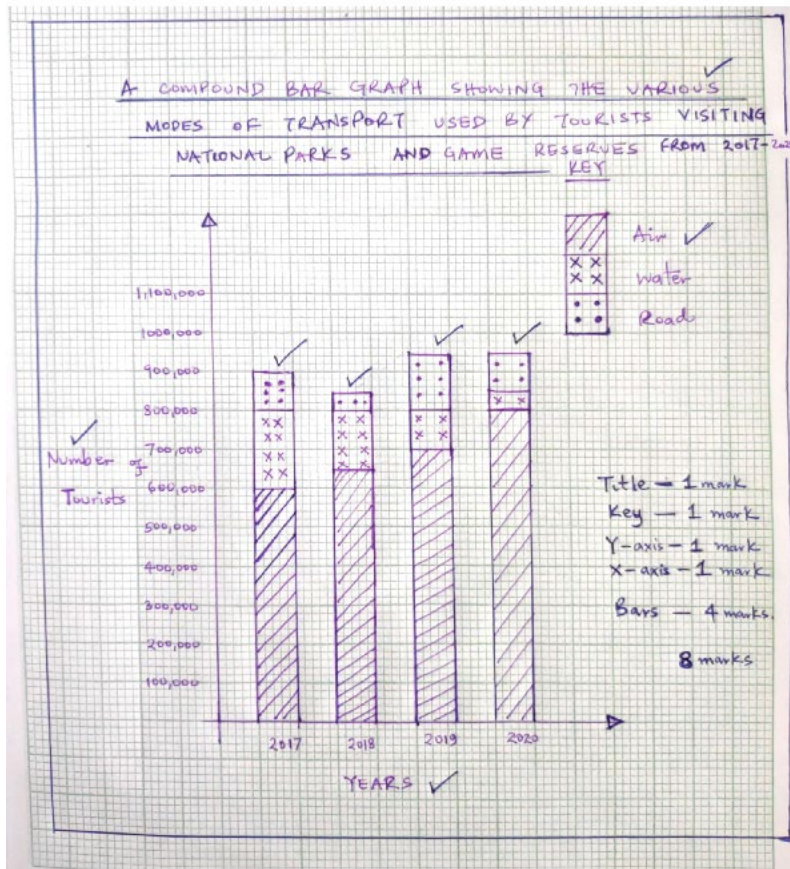 A COMPOUND BAR GRAPH SHOWING THE VARIOUS
MODES OF TRANSPORT USED BY TOURISTS VISITING
NATIONAL PARKS AND GAME RESERVES FROM 2017-202
KEY
Air
Water
Road
1,100,000
1000,000
900,000
800,000
700,000
600,000
500,000
400,000
300,000
200,000
100,000
Number of
Tourists
2017 2018 2019 2020
YEARS
Title - 1 mark
Key - 1 mark
Y-axis - 1 mark
X-axis - 1 mark
Bars - 4 marks.
8 marks